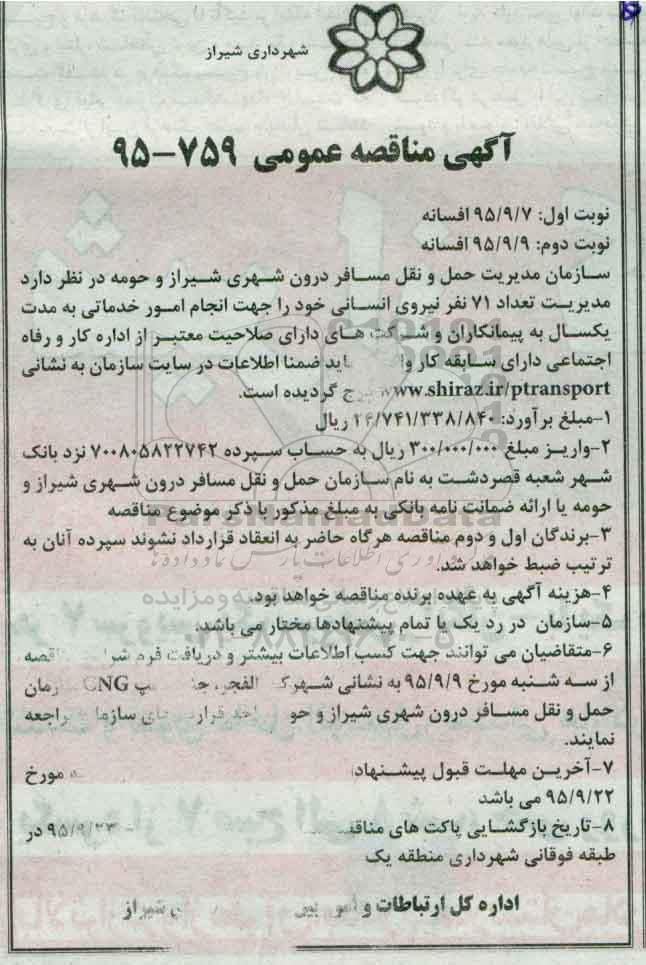 شهرداری شیراز
آگهی مناقصه عمومی ۷۵۹-۹۵
نوبت اول: ۹۵/۹/۷ افسانه
نوبت دوم: ۹۵/۹/۹ افسانه
سازمان مدیریت حمل و نقل مسافر درون شهری شیراز و حومه در نظر دارد
مدیریت تعداد ۷۱ نفر نیروی انسانی خود را جهت انجام امور خدماتی به مدت
یکسال به پیمانکاران و شرکت های دارای صلاحیت معتبر از اداره کار و رفاه
اجتماعی دارای سابقه کار ضمنا اطلاعات در سایت سازمان به نشانی
www.shiraz.ir/ptransport درج گردیده است.
۱-مبلغ برآورد: ۲۶/۷۴۱/۳۳۸/۸۴۰ ریال
۲-واریز مبلغ ۳۰۰/۰۰۰/۰۰۰ ریال به حساب سپرده ۷۰۰۸۰۵۸۲۲۷۴۲ نزد بانک
شهر شعبه قصردشت به نام سازمان حمل و نقل مسافر درون شهری شیراز و
حومه یا ارائه ضمانت نامه بانکی به مبلغ مذکور با ذکر موضوع مناقصه
۳-برندگان اول و دوم مناقصه هرگاه حاضر به انعقاد قرارداد نشوند سپرده آنان به
ترتیب ضبط خواهد شد.
۴-هزینه آگهی به عهده برنده مناقصه خواهد بود.
۵-سازمان در رد یک یا تمام پیشنهادها مختار می باشد.
۶-متقاضیان می توانند جهت کسب اطلاعات بیشتر و دریافت فرم
از سه شنبه مورخ ۹۵/۹/۹ به نشانی شهرک الفجر، CNG
حمل و نقل مسافر درون شهری شیراز و مراجعه
نمایند.
۷-آخرین مهلت قبول پیشنهاد مورخ
۹۵/۹/۲۲ می باشد
۸-تاریخ بازگشایی پاکت های ۹۵/۹/۲۳ در
طبقه فوقانی شهرداری منطقه یک
اداره کل ارتباطات و شیراز
ParsNamadData